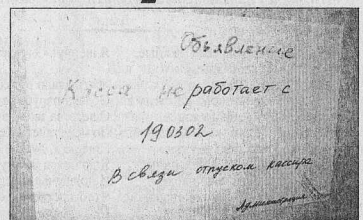 Объявление
Касса не работает с
190302
В связи отпуском кассира
Администрация